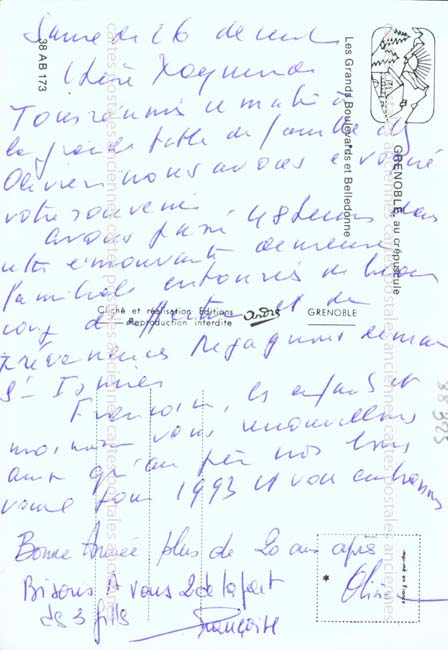 Samedi 26 décembre
Chère Raymonde
Tous réunis ce matin à
la grande table de famille des
Olivier nous avons évoqué
votre souvenir.
avons passé 48 heures dans
cette émouvante demeure
familiale entourés de beau
coup d'affection et de
prévenances Regagnons demain
St Ismier
François, les enfants et
moi-même vous renouvellons
ainsi qu' nos bons
vœux pour 1993 et vous embrassons
Bonne Année plus de 20 ans après
Bisous A vous 2 de la part
des 3 fils
Françoise
Olivier
38 AB 173
Les Grands Boulevards et Belledonne
GRENOBLE au crépuscule
Cliché et réalisation Editions
Reproduction interdite
André
GRENOBLE
imprimé en France
cartes postales anciennes
38 925